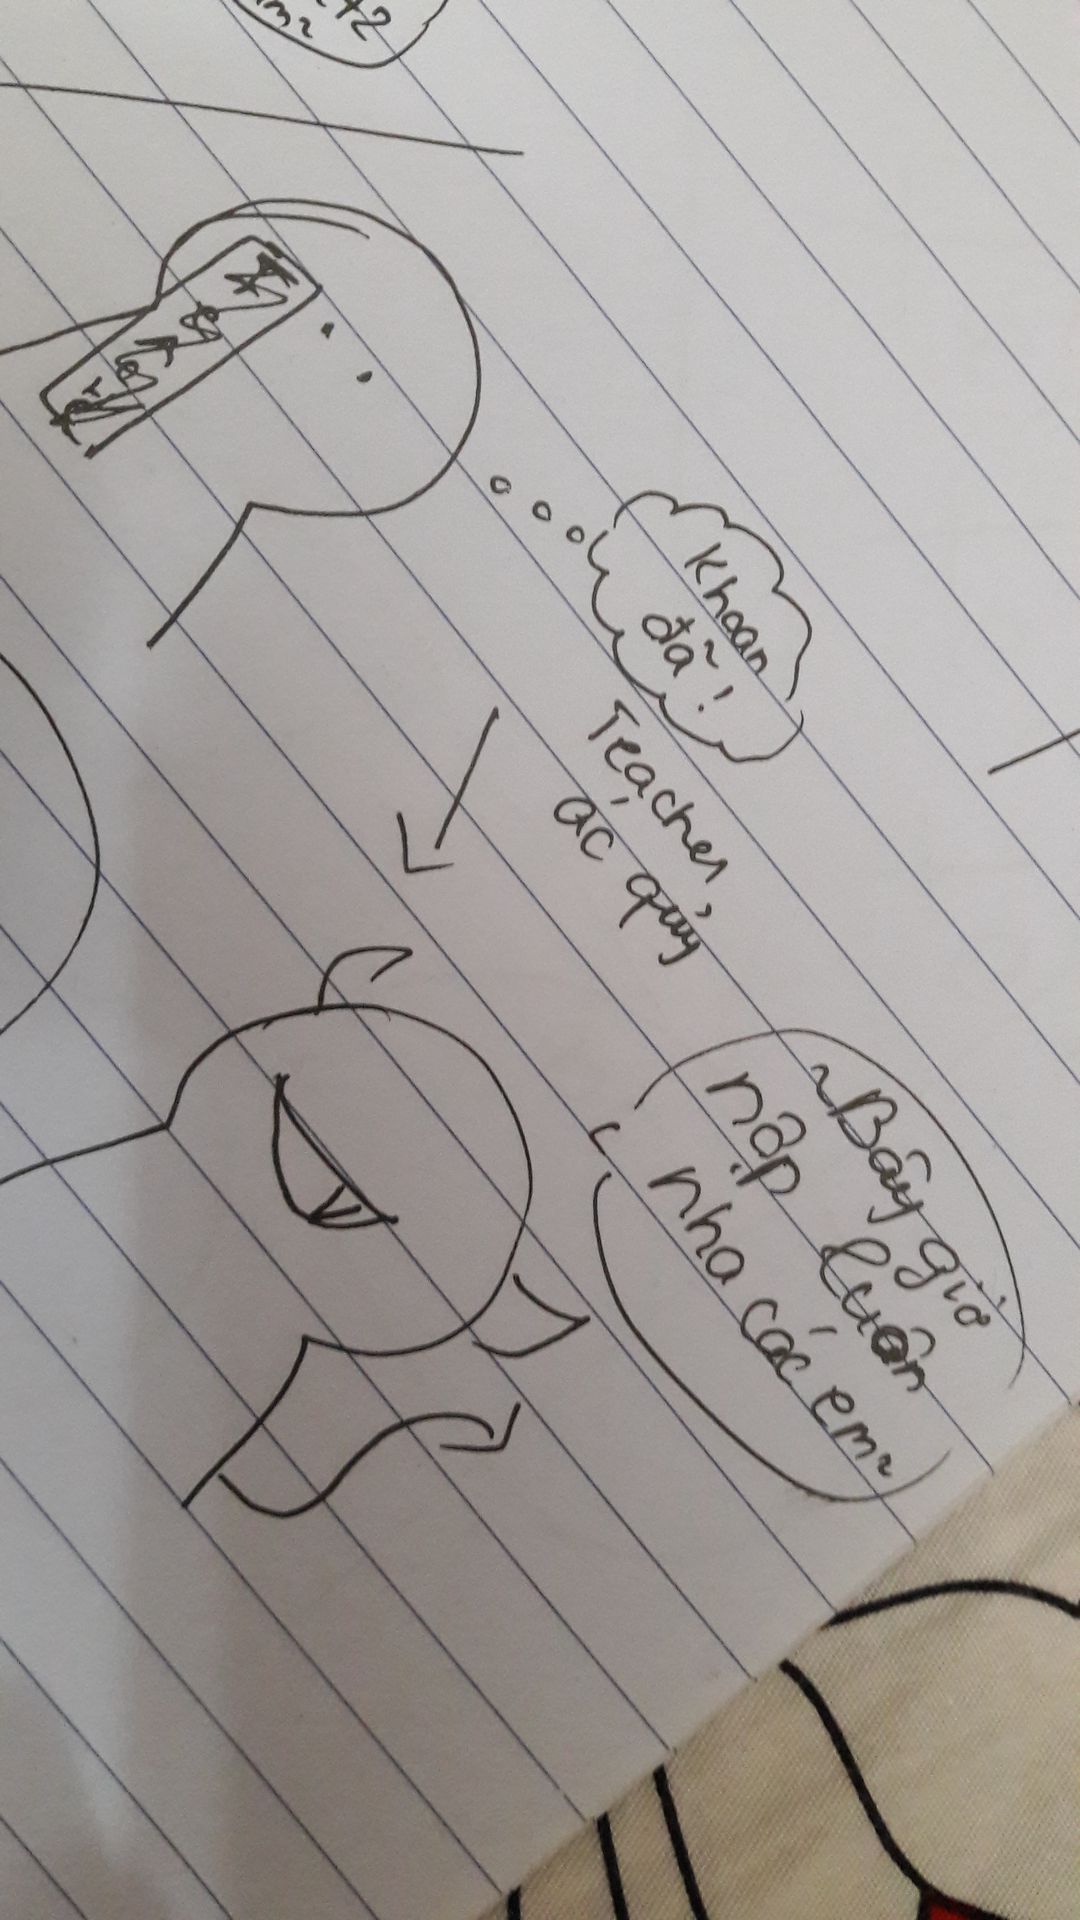 +2
Khoan
đã!
Teacher
ác quỷ
~Bây giờ
nộp luôn
nha các em~